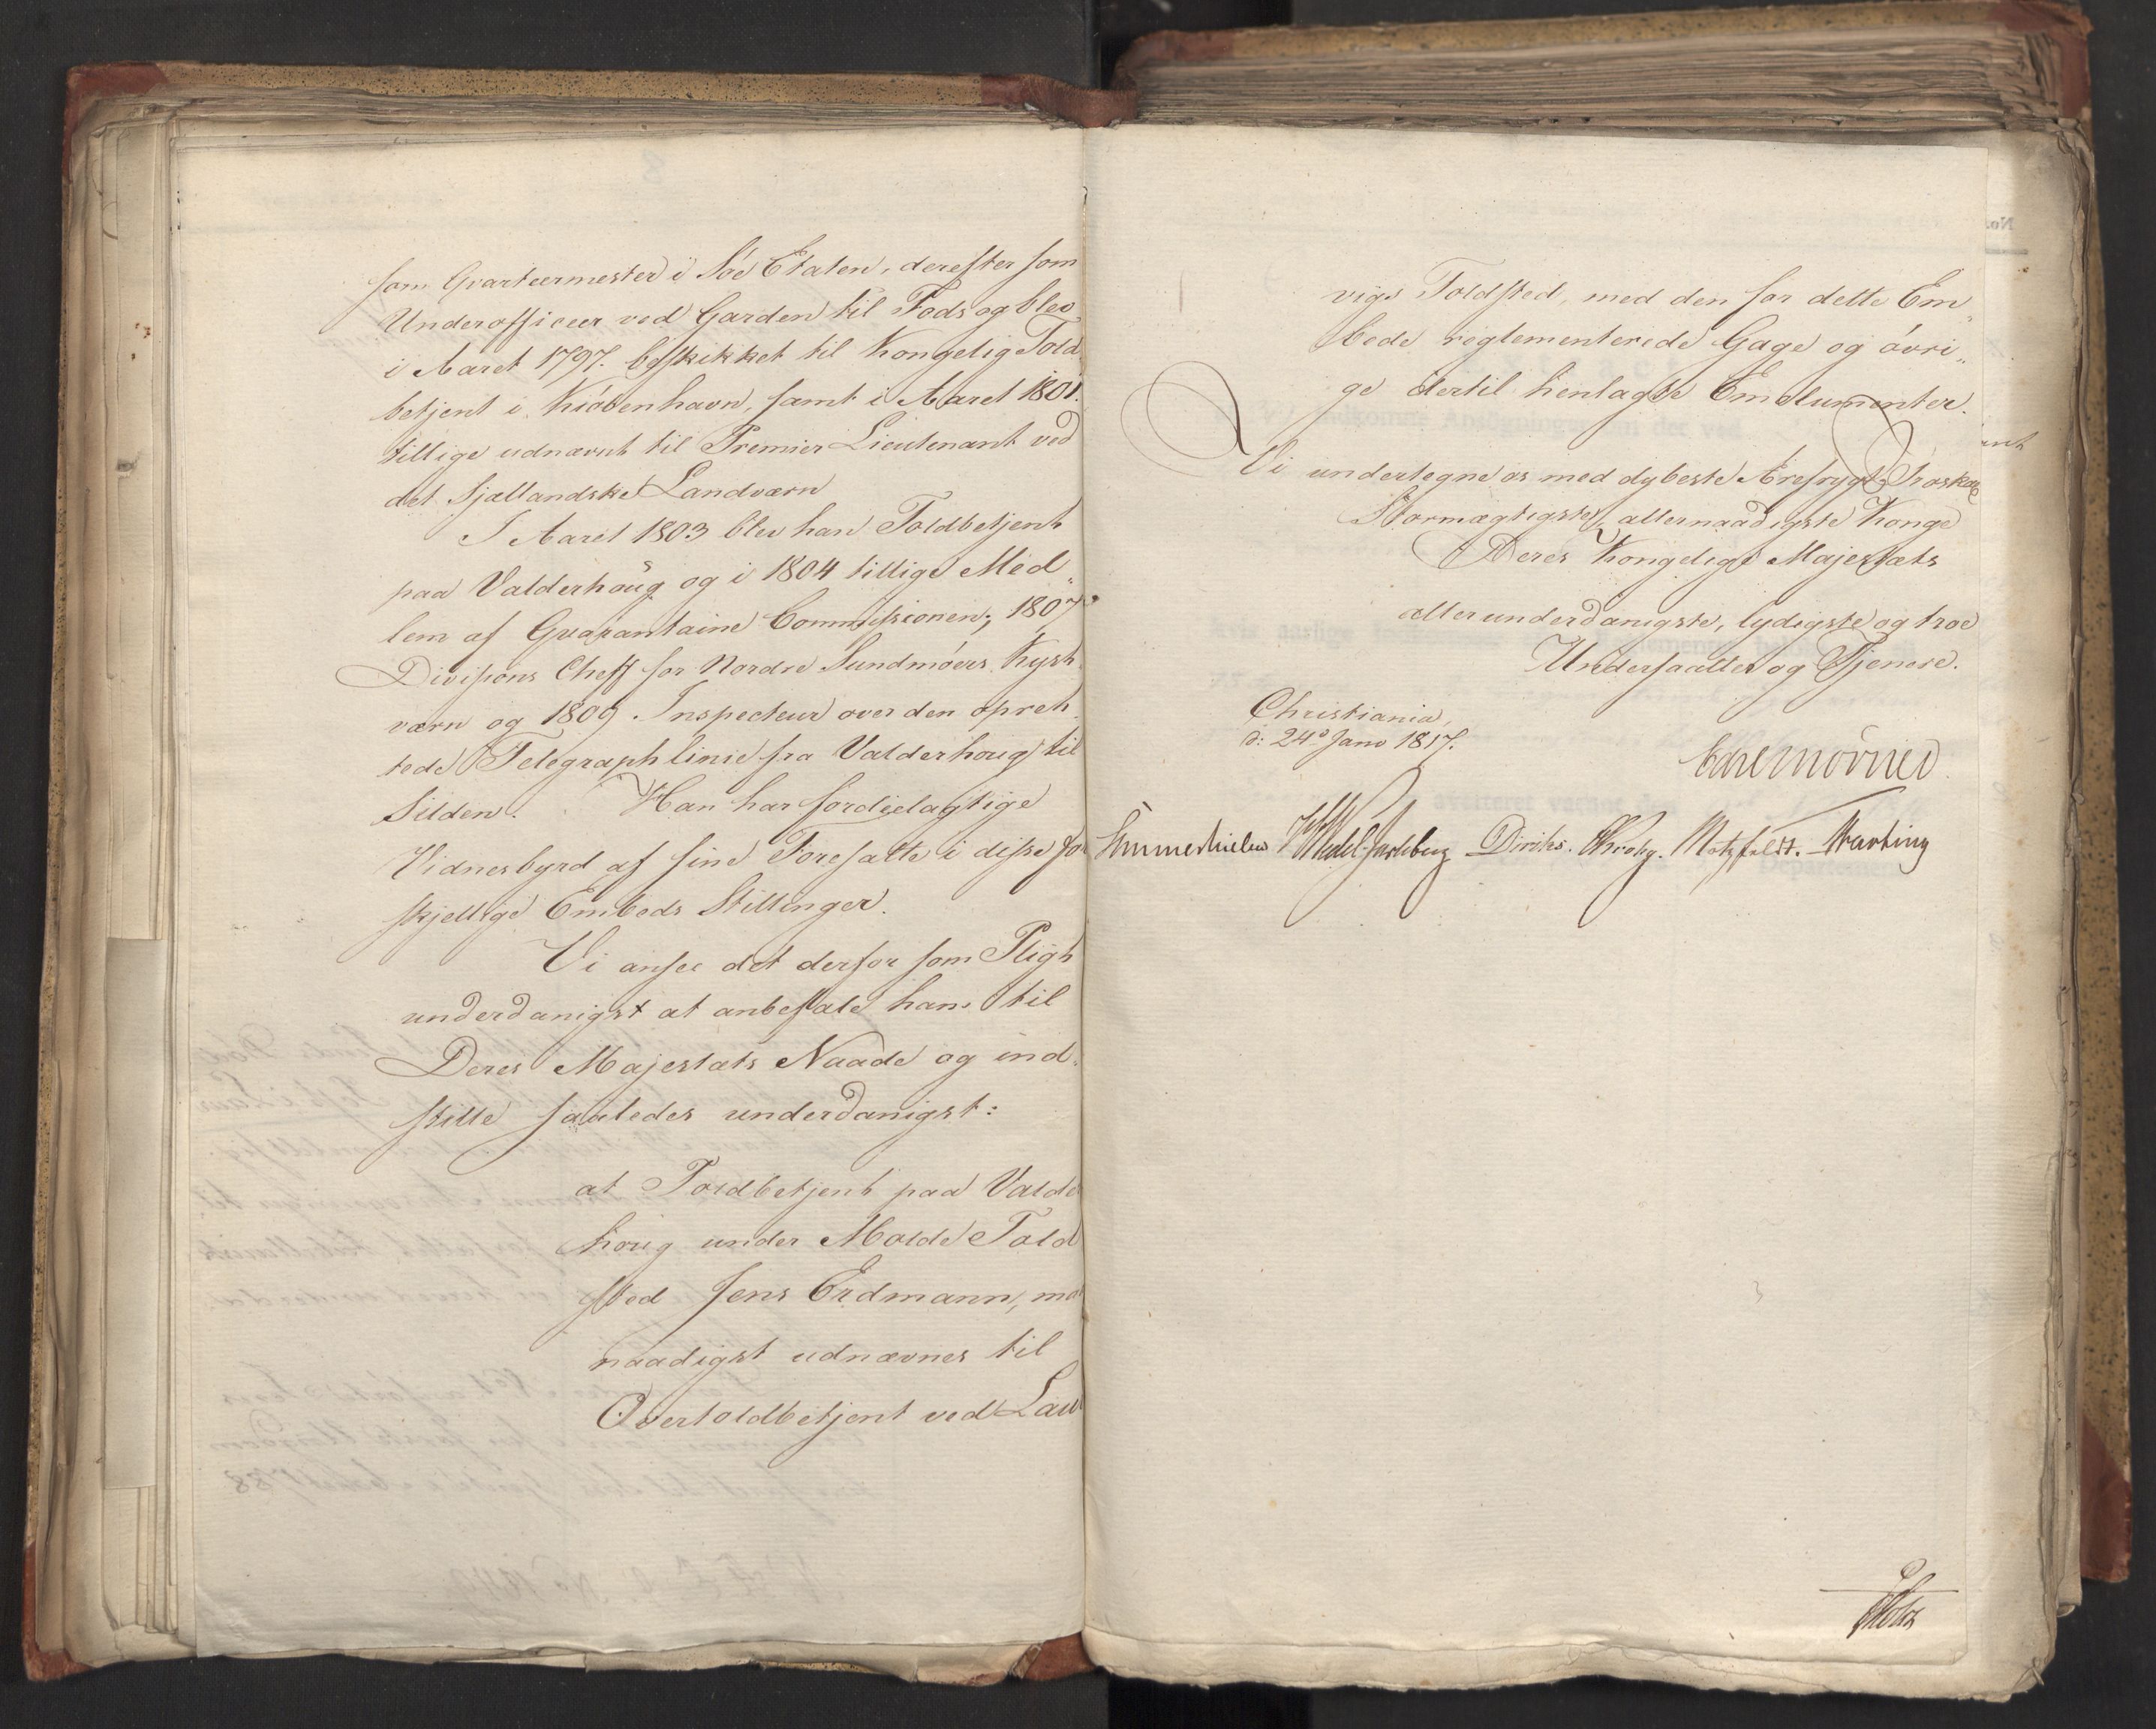 som Qvarteermester i Søe Etaten, derefter som
Underofficeer ved Garden til Fods og blev
i Aaret 1797. beskikket til Kongelig Told-
betjent i Kiøbenhavn, samt i Aaret 1801.
tillige udnævnt til Premier Lieutenant ved
det Sjællandske Landværn
I Aaret 1803 blev han Toldbetjent
paa Valderhoug og i 1804 tillige Med„
lem af Quarantaine Commissionen; 1807
Divisions Cheff for Nordre Sundmøers Kyst-
værn og 1809. Inspecteur over den opret-
tede Telegraphlinie fra Valderhoug til
Silden. Han har fordeelagtige
Vidnesbyrd af sine Foresatte i disse for
skjellige Embeds Stillinger.
Vi ansee det derfor som Pligt
underdanigst at anbefale ham til
Deres Majestæts Naade og ind-
stille saaledes underdanigst:
at Toldbetjent paa Valde
houg under Molde Told
sted Jens Erdmann, maa
naadigst udnævnes til
Overtoldbetjent ved Laur
vigs Toldsted, med den for dette Em„
bede reglementerede Gage og øvri„
ge dertil henlagte Emolumenter.
Vi undertegne os med dybeste Ærefrygt, Troskab
Stormægtigste, allernaadigste Konge
Deres Kongelige Majestæts
allerunderdanigste, lydigste og troe
Undersaatter og Tjenere.
Christiania,
d: 24d Janv 1817.
Sommerhielm Wedel-Jarlsberg Diriks. Krohg. Motzfeldt.
Holst